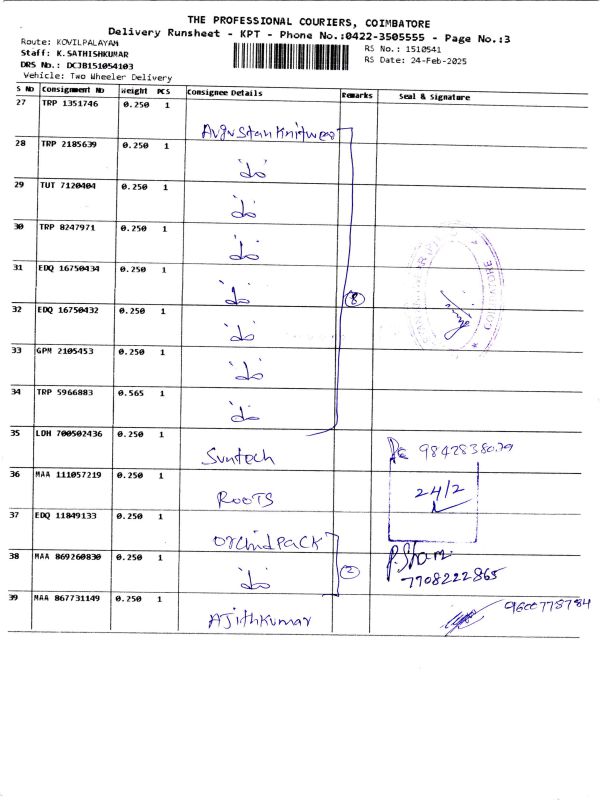 THE PROFESSIONAL COURIERS, COIMBATORE
Delivery Runsheet - KPT - Phone No.:0422-3505555 - Page No.:3
Route: KOVILPALAYAM
RS No.: 1510541
Staff: K.SATHISHKUMAR
RS Date: 24-Feb-2025
DRS No.: DCJB151054103
Vehicle: Two Wheeler Delivery
S No Consignment No Weight PCS Consignee Details Remarks Seal & Signature
27 TRP 1351746 0.250 1
AuguStan Knitwear
28 TRP 2185639 0.250 1
"do"
29 TUT 7120404 0.250 1
"do"
30 TRP 8247971 0.250 1
"do"
31 EDQ 16750434 0.250 1
"do" 8
32 EDQ 16750432 0.250 1
"do"
33 GPM 2105453 0.250 1
"do"
34 TRP 5966883 0.565 1
"do"
35 LDH 700502436 0.250 1
Suntech 9842838079
36 MAA 111057219 0.250 1
ROOTS 24/2
37 EDQ 11849133 0.250 1
Orchid Pack
38 MAA 869260830 0.250 1
"do" 2 P. Sham
7708222865
39 MAA 867731149 0.250 1
Ajithkumar 9600775784
COIMBATORE